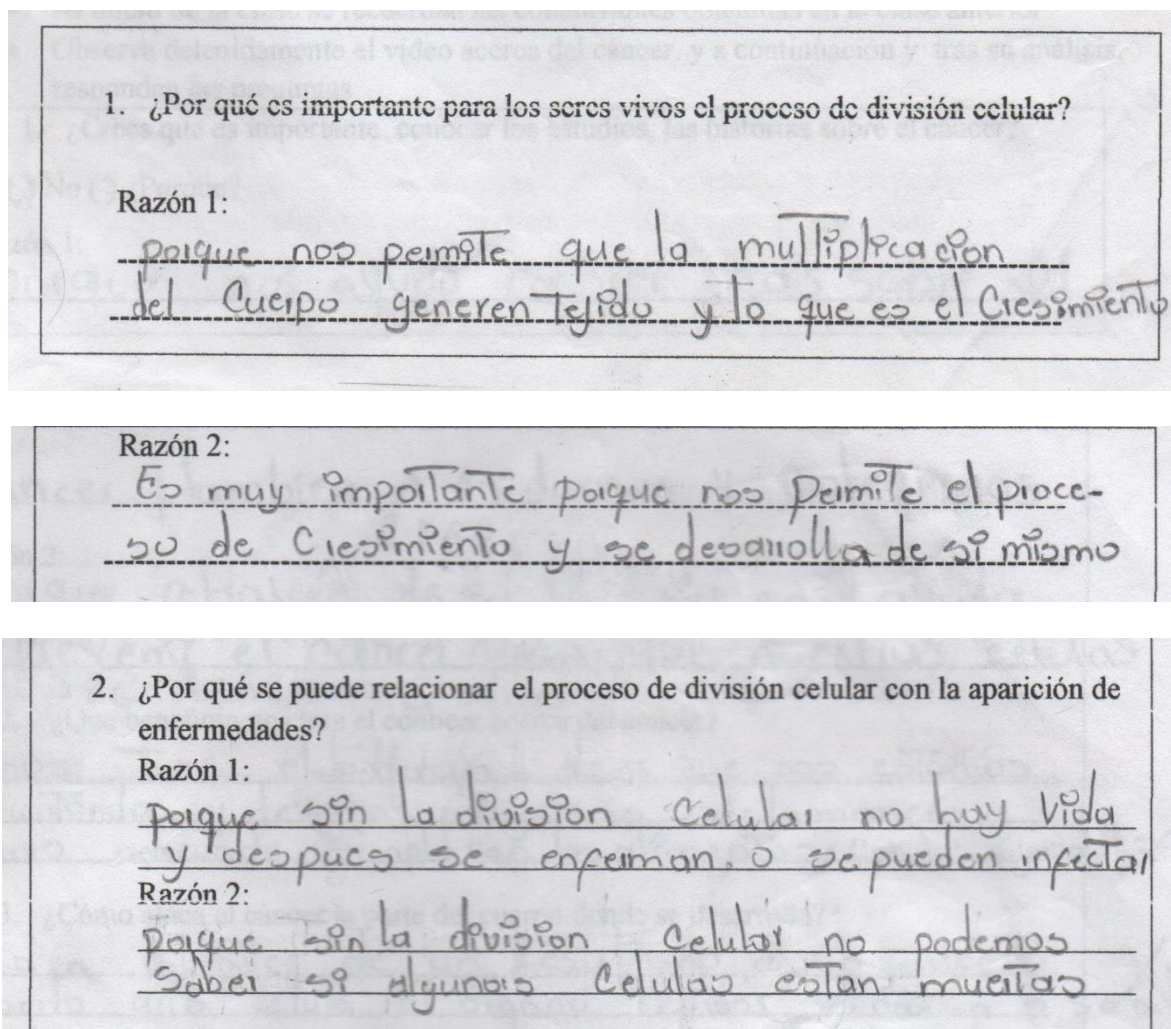 1. ¿Por qué es importante para los seres vivos el proceso de división celular?
Razón 1:
porque nos permite que la multiplicacion
del cuerpo generen tejido y lo que es el Cresimiento
Razón 2:
Es muy importante porque nos permite el proce-
so de Cresimiento y se desarrolla de si mismo
2. ¿Por qué se puede relacionar el proceso de división celular con la aparición de
enfermedades?
Razón 1:
Porque sin la division Celular no hay Vida
y despues se enferman o se pueden infectar
Razón 2:
porque sin la division Celular no podemos
saber si algunas Celulas estan muertas